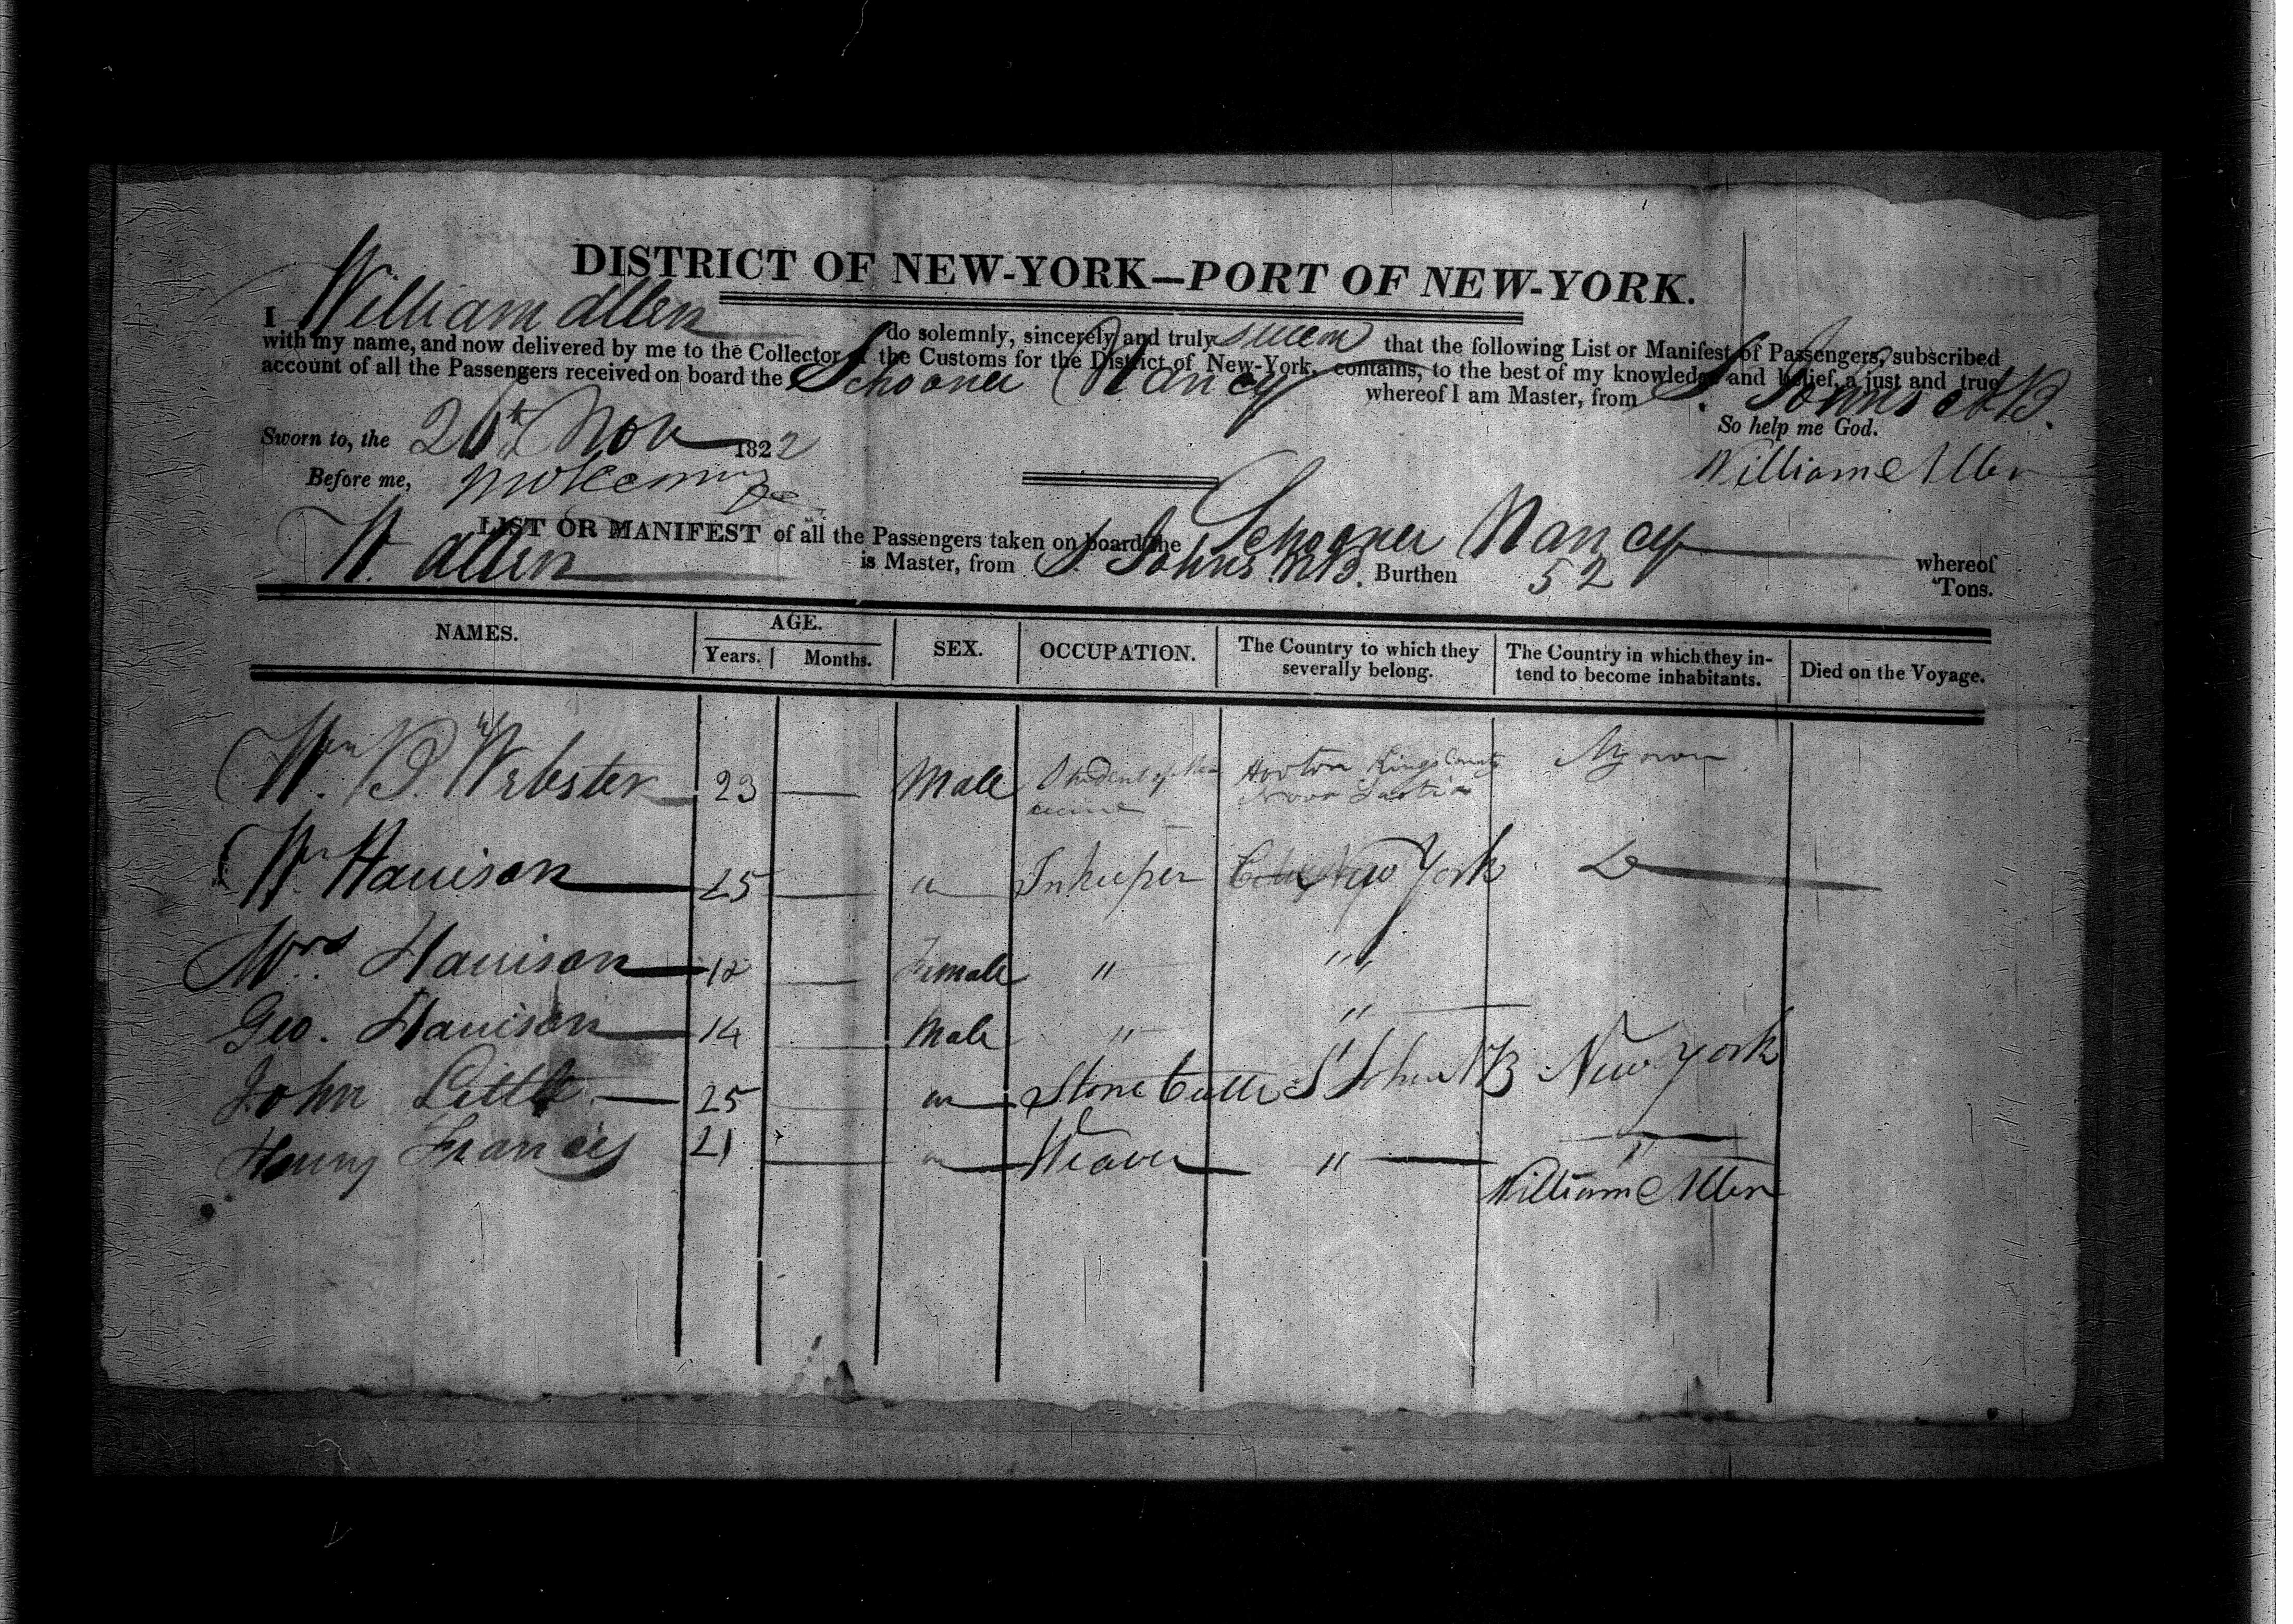 DISTRICT OF NEW-YORK—PORT OF NEW-YORK.
I William Allen do solemnly, sincerely and truly swear that the following List or Manifest of Passengers, subscribed
with my name, and now delivered by me to the Collector of the Customs for the District of New-York, contains, to the best of my knowledge and belief, a just and true
account of all the Passengers received on board the Schooner Nancy whereof I am Master, from St. Johns NB.
So help me God.
Sworn to, the 26th Nov 1822
William Allen
Before me,
LIST OR MANIFEST of all the Passengers taken on board the Schooner Nancy whereof
W. Allen is Master, from St. Johns NB. Burthen 52 Tons.
NAMES. AGE. SEX. OCCUPATION. The Country to which they severally belong. The Country in which they intend to become inhabitants. Died on the Voyage.
Years. Months.
Wm B. Webster 23 — Male Student of Medicine Horton Kings County Nova Scotia My own
Wm Harrison 25 — " Inkeeper New York Do
Mrs Harrison 18 — Female " "
Geo. Harrison 14 — Male " "
John Little 25 — " Stone Cutter St John NB New York
Henry Francis 21 — " Weaver " "
William Allen